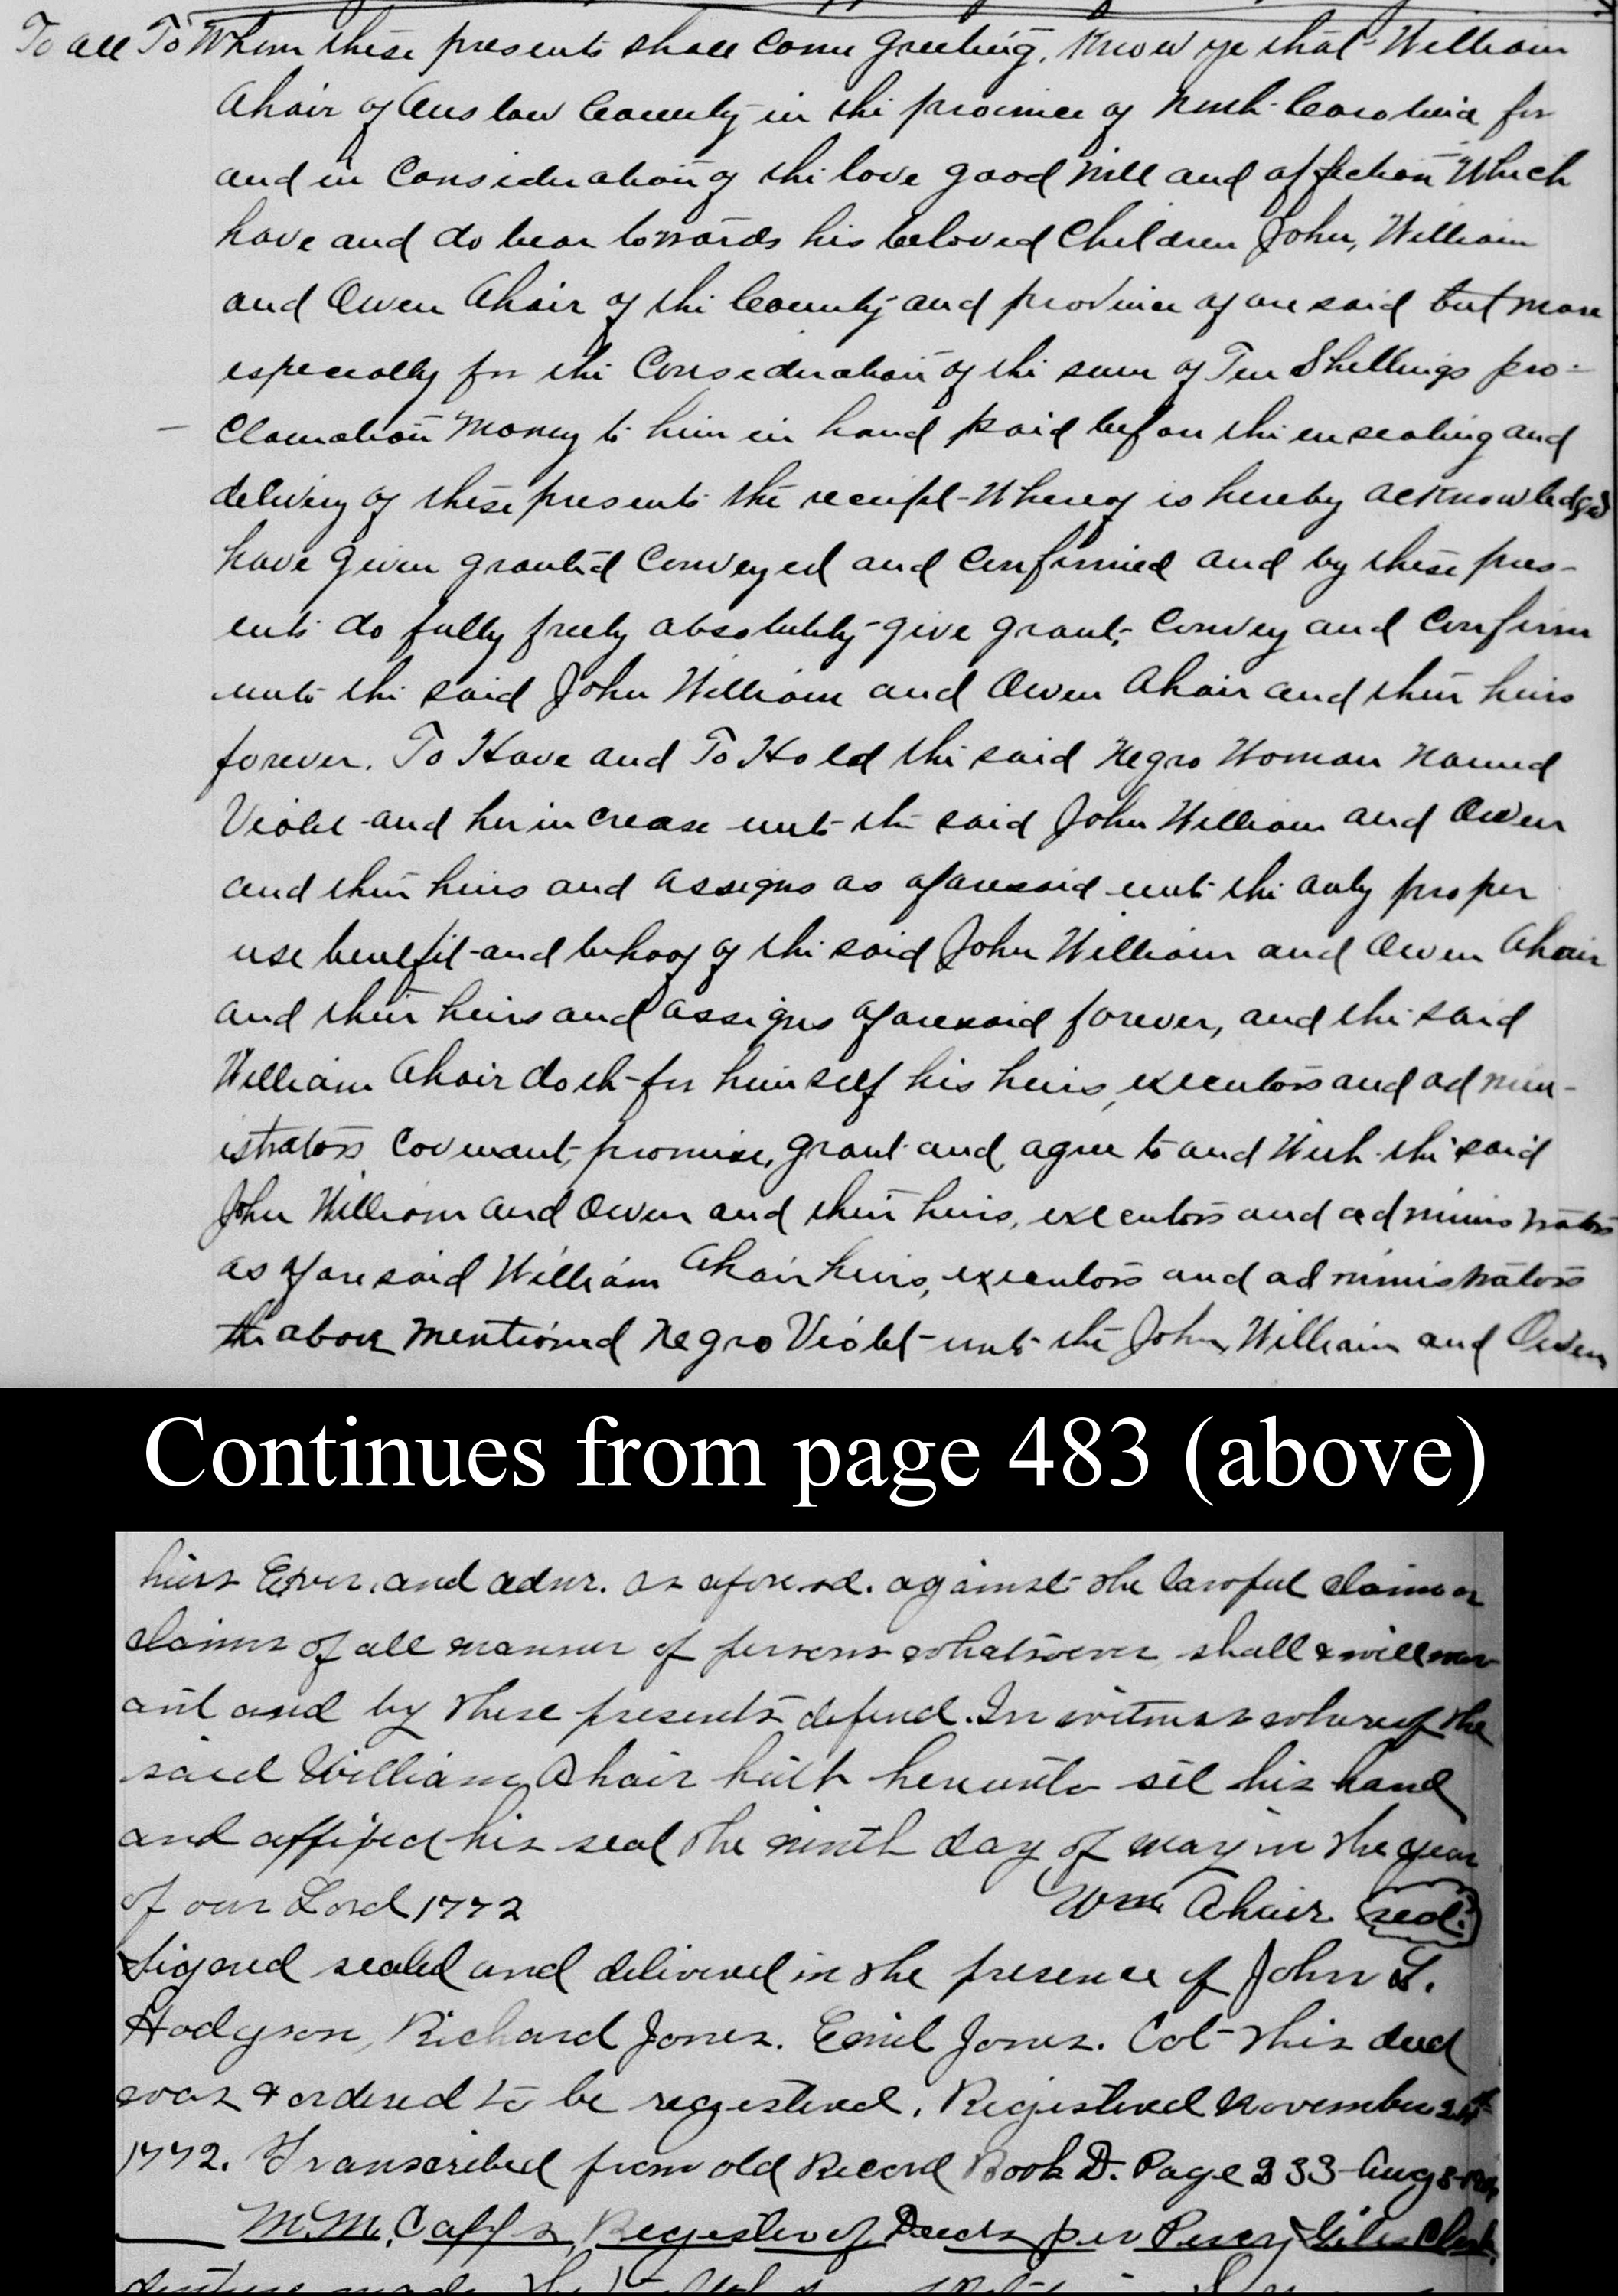 To all To Whom these presents shall come Greeting. Know ye that William
Ahair of Onslow County in the province of North Carolina for
and in Consideration of the love good will and affection Which
have and do bear towards his beloved Children John, William
and Owen Ahair of the County and province aforesaid but more
especially for the Consideration of the sum of Ten Shillings pro-
clamation Money to him in hand paid before the ensealing and
delivery of these presents the receipt Whereof is hereby acknowledged
have given granted conveyed and confirmed and by these pres-
ents do fully freely absolutely give grant, convey and confirm
unto the said John William and Owen Ahair and their heirs
forever. To Have and To Hold the said Negro Woman Named
Violet and her increase unto the said John William and Owen
and their heirs and assigns as aforesaid unto the only proper
use benefit and behoof of the said John William and Owen Ahair
and their heirs and assigns aforesaid forever, and the said
William Ahair doth for himself his heirs, executors and admin-
istrators covenant, promise, grant and agree to and With the said
John William and Owen and their heirs, executors and administrators
as aforesaid William Ahair heirs, executors and administrators
the above mentioned Negro Violet unto the John, William and Owen
Continues from page 483 (above)
heirs Exer. and admr. as aforesd. against the lawful claim or
claims of all manner of persons whatsoever shall & will warr
ant and by these presents defend. In witness whereof the
said William Ahair hath hereunto set his hand
and affixed his seal the ninth day of may in the year
of our Lord 1772 Wm Ahair seal.
Signed sealed and delivered in the presence of John
Hodgson, Richard Jones. Jones. this deed
was & ordered to be registered. Registered November 24th
1772. Transcribed from old Record Book D. Page 333 Aug
Register of Deeds per Percy Giles Clerk